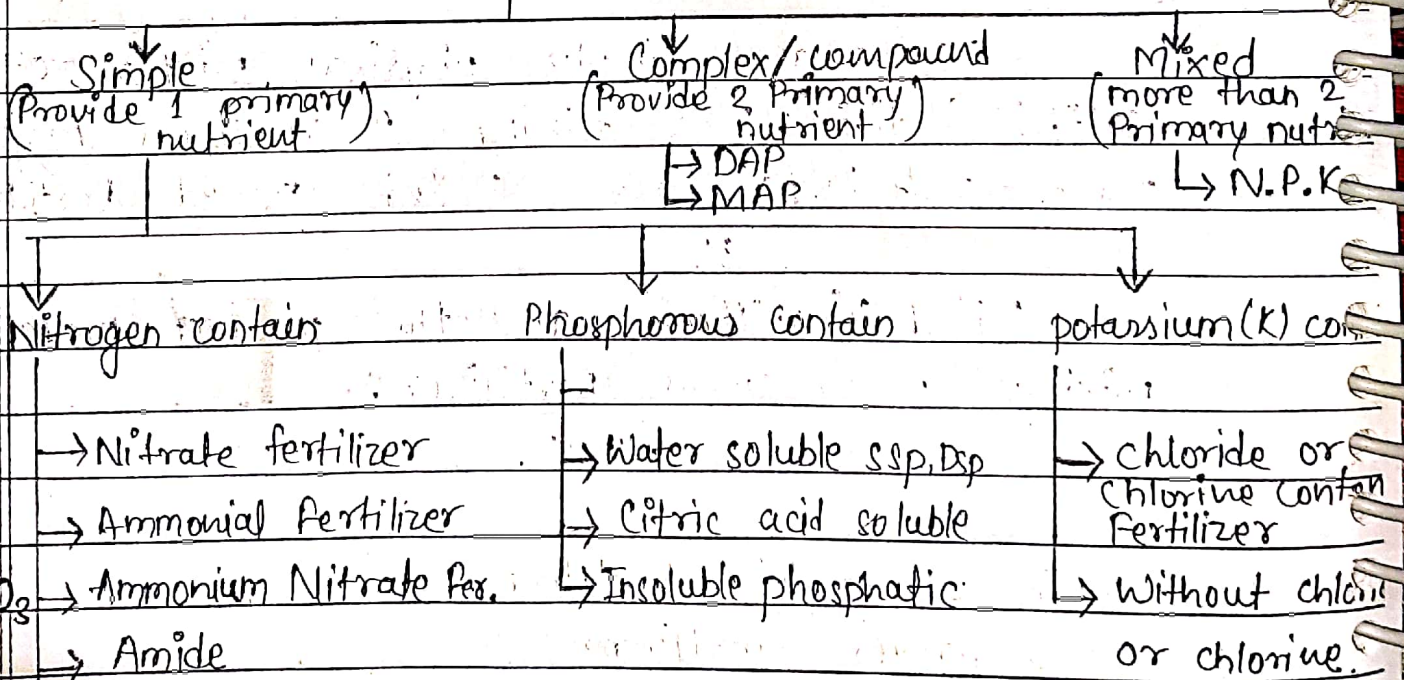 Simple
(Provide 1 primary
nutrient)
Complex/compound
(Provide 2 Primary
nutrient)
→ DAP
→ MAP
Mixed
(more than 2
Primary
→ N.P.K
Nitrogen contain
→ Nitrate fertilizer
→ Ammonial fertilizer
→ Ammonium Nitrate fer.
→ Amide
Phosphorous contain
→ Water soluble SSP, DSP
→ Citric acid soluble
→ Insoluble phosphatic
potassium (K)
→ chloride or
chlorine
Fertilizer
→ Without
or chlorine.